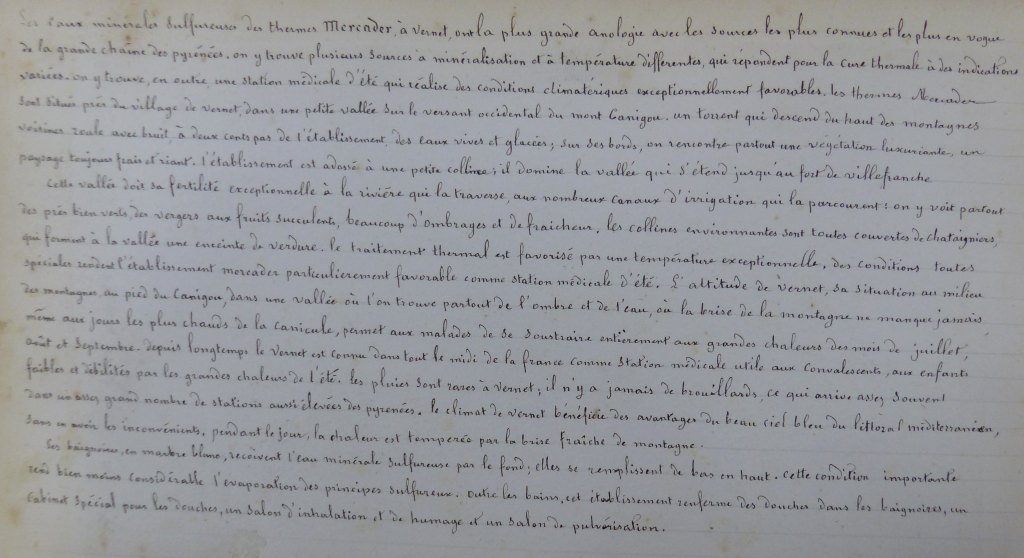 Les eaux minérales Sulfureuses des thermes Mercader, à Vernet, ont la plus grande anologie avec les sources les plus connues et les plus en vogue
de la grande chaîne des pyrénées. on y trouve plusieurs sources à minéralisation et à température differentes, qui repondent pour la cure thermale à des indications
variées. on y trouve, en outre, une station médicale d'été qui réalise des conditions climatériques exceptionnellement favorables. les thermes Mercader
sont situés près du village de vernet, dans une petite vallée sur le versant occidental du mont Canigou. un torrent qui descend du haut des montagnes
voisines roule avec bruit, à deux cents pas de l'établissement, des eaux vives et glacées; sur ses bords, on rencontre partout une végétation luxuriante, un
paysage toujours frais et riant. l'établissement est adossé à une petite colline; il domine la vallée qui s'étend jusqu'au fort de villefranche
Cette vallée doit sa fertilité exceptionnelle à la rivière qui la traverse, aux nombreux canaux d'irrigation qui la parcourent: on y voit partout
des prés bien verts, des vergers aux fruits succulents, beaucoup d'ombrages et de fraicheur. les collines environnantes sont toutes couvertes de chataigniers,
qui forment à la vallée une enceinte de verdure. le traitement thermal est favorisé par une température exceptionnelle. des conditions toutes
spéciales rendent l'établissement mercader particulierement favorable comme station médicale d'été. L'altitude de vernet, sa situation au milieu
des montagnes, au pied du Canigou, dans une vallée où l'on trouve partout de l'ombre et de l'eau, où la brise de la montagne ne manque jamais,
même aux jours les plus chauds de la canicule, permet aux malades de se soustraire entièrement aux grandes chaleurs des mois de juillet,
août et septembre. depuis longtemps le vernet est connu dans tout le midi de la france comme station médicale utile aux convalescents, aux enfants
faibles et débilités par les grandes chaleurs de l'été. les pluies sont rares à vernet; il n'y a jamais de brouillards, ce qui arrive assez souvent
dans un assez grand nombre de stations aussi élevées des pyrenées. le climat de vernet bénéficie des avantages du beau ciel bleu du littoral méditerranéen,
sans en avoir les inconvénients. pendant le jour, la chaleur est temperée par la brise fraîche de montagne.
Les baignoires, en marbre blanc, recoivent l'eau minérale sulfureuse par le fond; elles se remplissent de bas en haut. cette condition importante
rend bien moins considérable l'evaporation des principes sulfureux. outre les bains, cet établissement renferme des douches dans les baignoires, un
cabinet spécial pour les douches, un salon d'inhalation et de humage et un salon de pulvérisation.